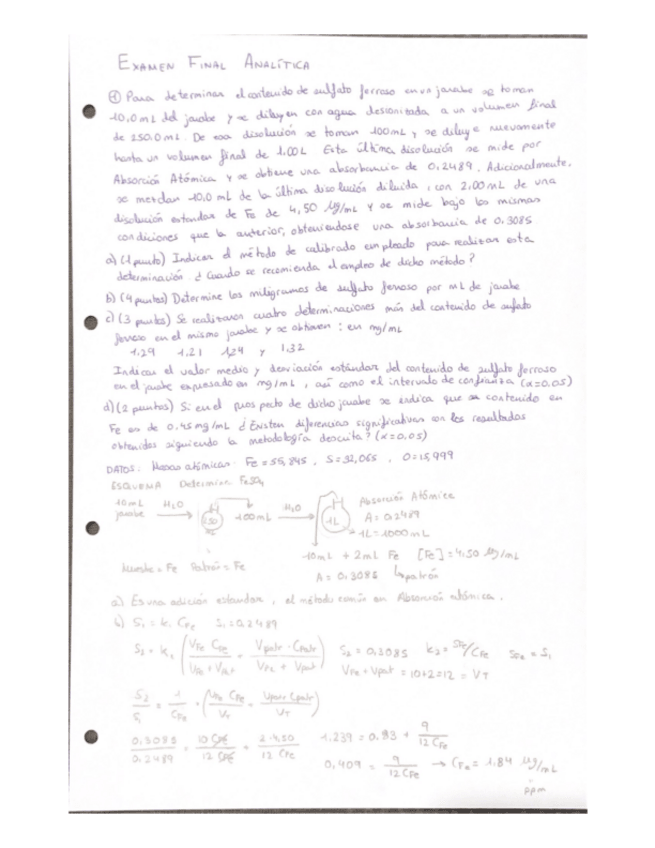 EXAMEN FINAL ANALÍTICA
① Para determinar el contenido de sulfato ferroso en un jarabe se toman
10,0 mL del jarabe y se diluyen con agua desionizada a un volumen final
de 250,0 mL. De esa disolución se toman 100 mL y se diluye nuevamente
hasta un volumen final de 1,00L. Esta última disolución se mide por
Absorción Atómica y se obtiene una absorbancia de 0,2489. Adicionalmente,
se mezclan 10,0 mL de la última disolución diluida, con 2,00 mL de una
disolución estandar de Fe de 4,50 µg/mL y se mide bajo las mismas
condiciones que la anterior, obteniendose una absorbancia de 0,3085
a) (1 punto) Indicar el método de calibrado empleado para realizar esta
determinación ¿Cuando se recomienda el empleo de dicho método?
b) (4 puntos) Determine los miligramos de sulfato ferroso por mL de jarabe
c) (3 puntos) Se realizaron cuatro determinaciones más del contenido de sulfato
ferroso en el mismo jarabe y se obtienen: en mg/mL
1,29 1,21 1,24 y 1,32
Indicar el valor medio y desviación estándar del contenido de sulfato ferroso
en el jarabe expresado en mg/mL, así como el intervalo de confianza (α=0,05)
d) (2 puntos) Si en el prospecto de dicho jarabe se indica que su contenido en
Fe es de 0,45 mg/mL ¿Existen diferencias significativas con los resultados
obtenidos siguiendo la metodología descrita? (α=0,05)
DATOS: Masas atómicas: Fe=55,845, S=32,065, O=15,999
ESQUEMA Determinar FeSO₄
10mL jarabe → H₂O 250 100mL → H₂O 1L Absorción Atómica
A = 0,2489
1L = 1000mL
10mL + 2mL Fe [Fe] = 4,50 µg/mL
Muestra = Fe Patrón = Fe A = 0,3085 ↳ patrón
a) Es una adición estandar, el método común en Absorción atómica.
b) S₁ = k₁ C_Fe S₁ = 0,2489
S₂ = k₁ (V_Fe C_Fe / V_Fe + V_patr + V_patr · C_patr / V_Fe + V_patr) S₂ = 0,3085 k₂ = S_Fe/C_Fe S_Fe = S₁
V_Fe + V_patr = 10+2 = 12 = V_T
S₂/S₁ = 1/C_Fe · (V_Fe C_Fe / V_T + V_patr C_patr / V_T)
0,3085/0,2489 = 10 C_Fe/12 C_Fe + 2·4,50/12 C_Fe 1,239 = 0,83 + 9/12 C_Fe
0,409 = 9/12 C_Fe → C_Fe = 1,84 µg/mL
ppm